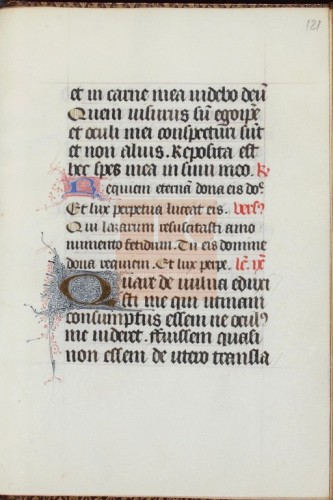 121
et in carne mea videbo deū
Quem visurus sū ego ip̄e
et oculi mei conspecturi sūt
et non alius. Reposita est
hec spes mea in sinu meo. R.
Requiem eternā dona eis do.
Et lux perpetua luceat eis. vers9
Qui lazarum resuscitasti a mo
numento fetidum. Tu eis domine
dona requiem. Et lux perpe. lc̄. ix
Quare de vulva eduxi
sti me qui utinam
consumptus essem ne ocul9
me videret. Fuissem quasi
non essem de utero transla